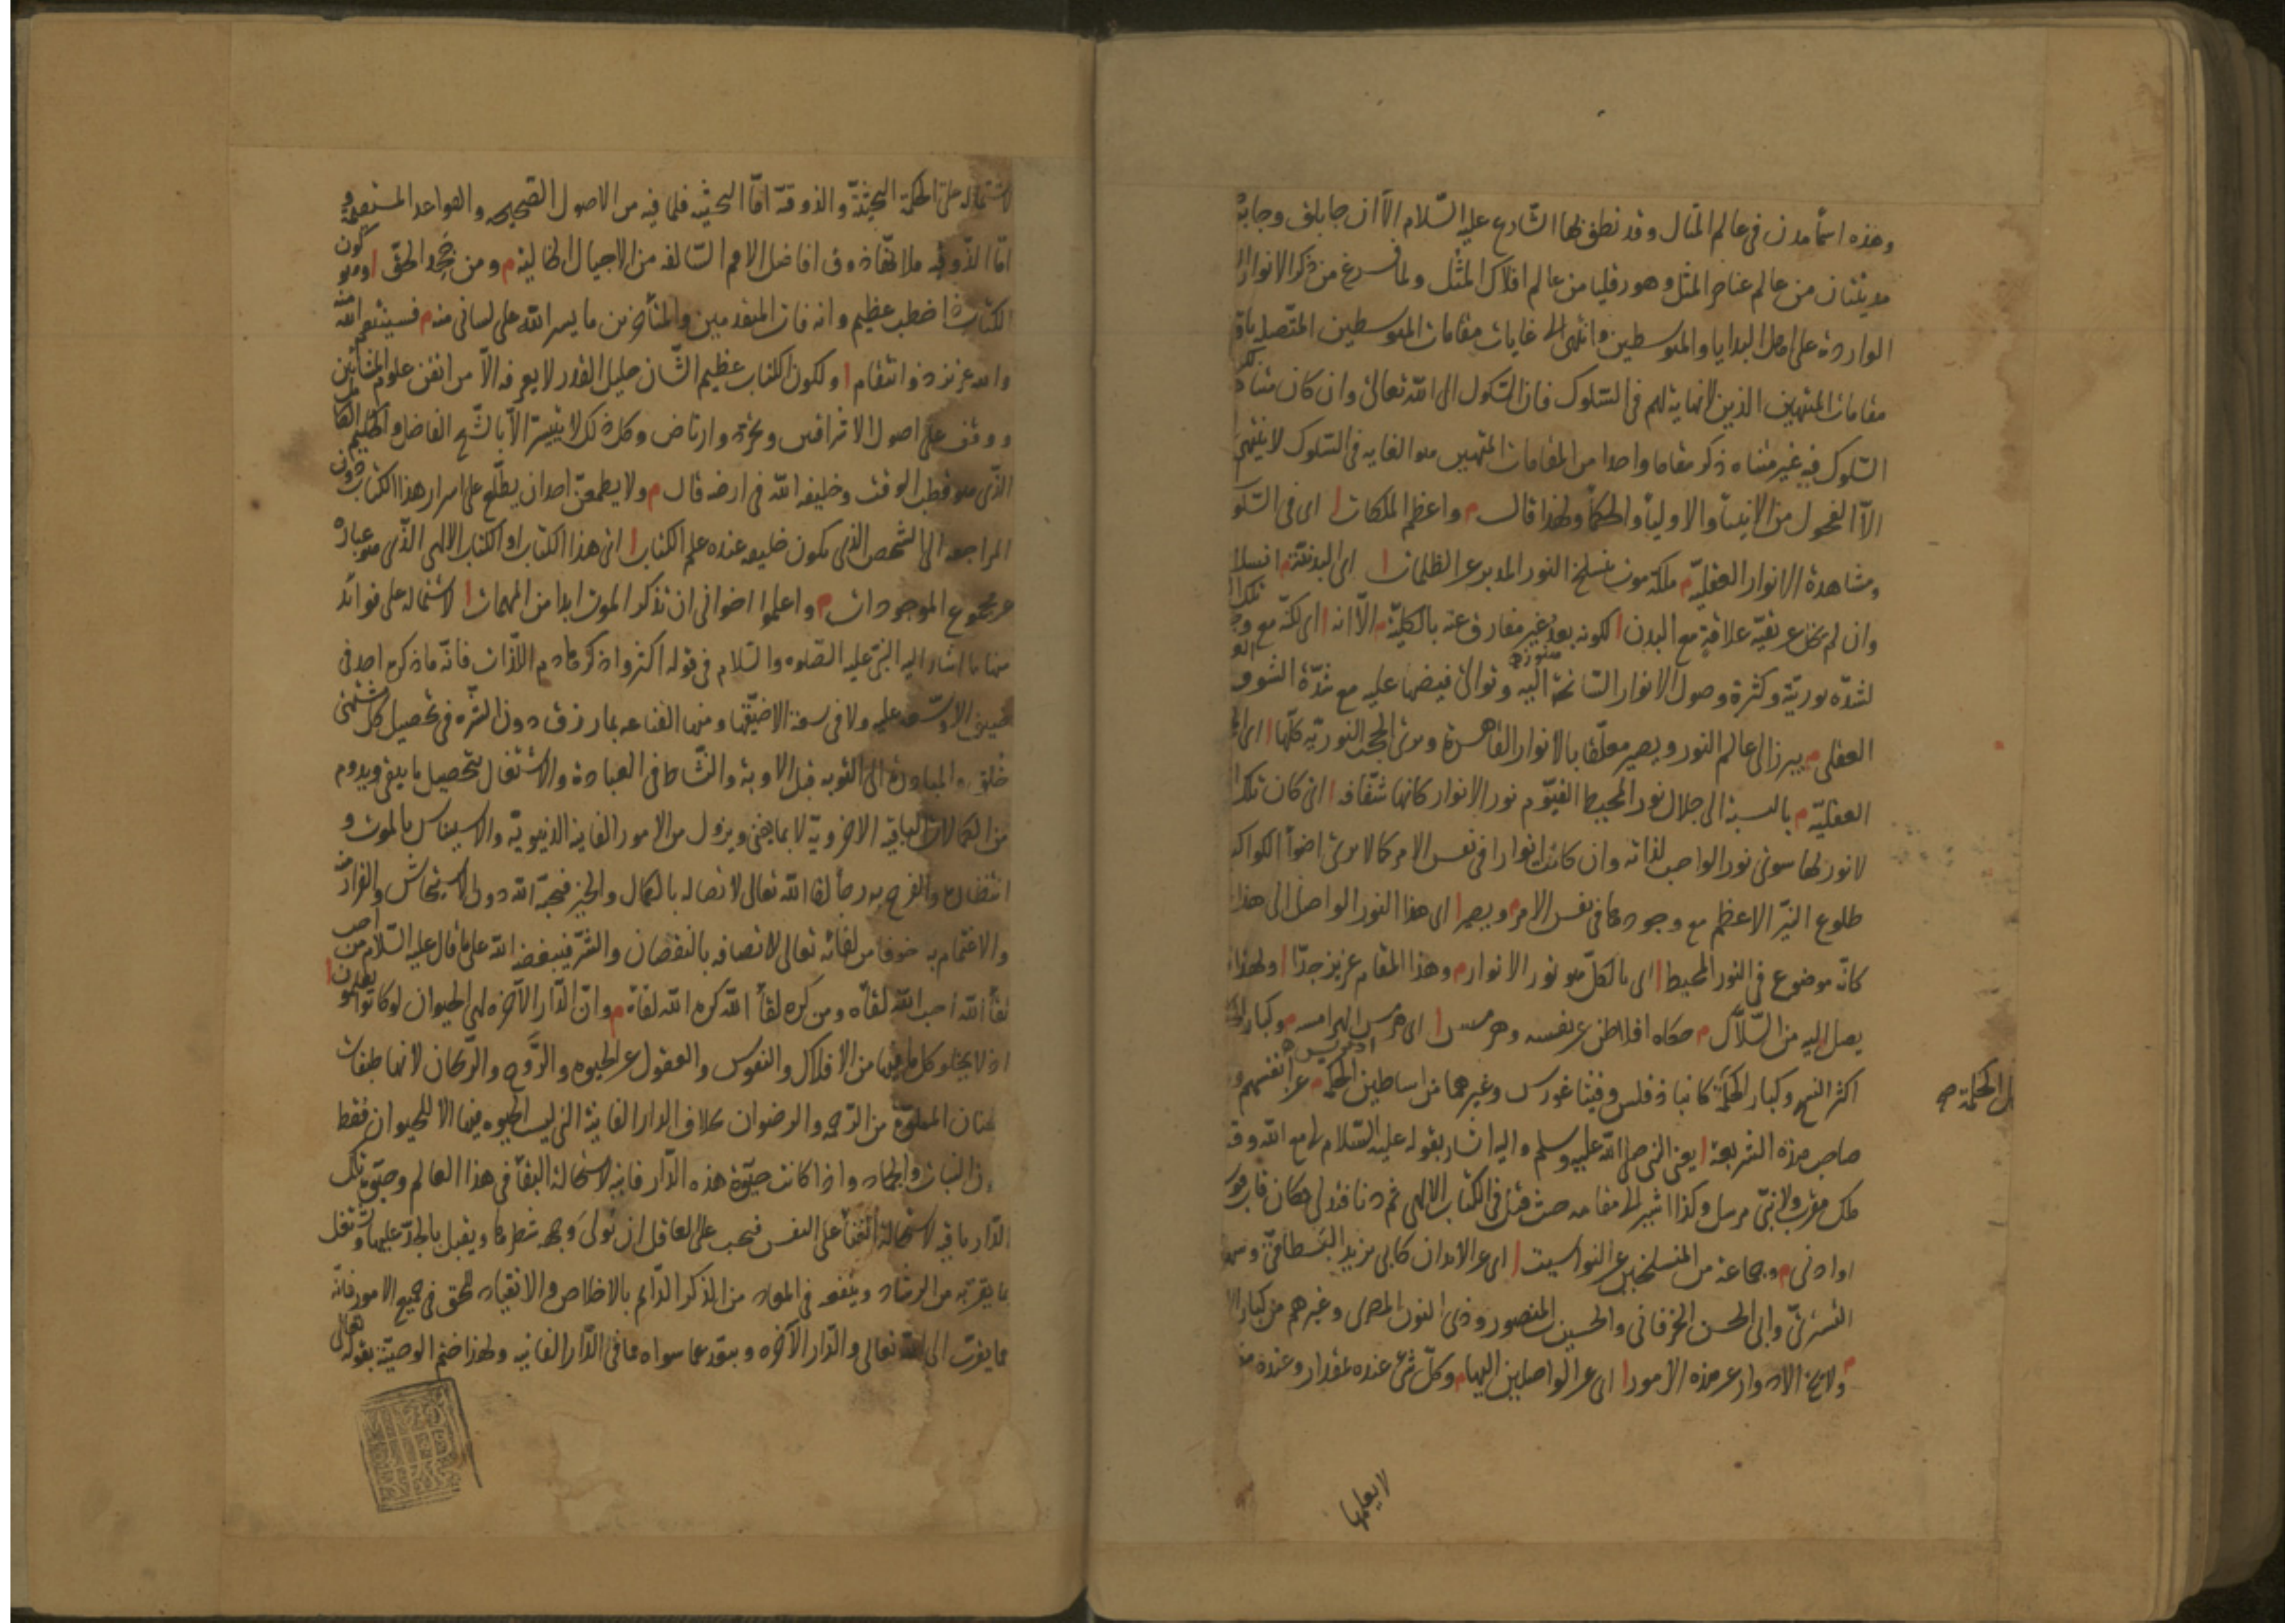 وهذه اسمأ مدن في عالم المثال وقد نطق بها الشارع عليه السلام الا ان جابلق وجابرص
مدينتان من عالم عناصر المثل وهورقليا من عالم افلاك المثل ولما فرغ من ذكر الانوار
الواردة على اهل البدايا والمتوسطين وانتهى الى غايات مقامات المتوسطين المتصل باول
مقامات المنتهين الذين لا نهاية لهم في السلوك فان السلوك الى الله تعالى وان كان متناه لكن
السلوك فيه غير متناه ذكر مقاما واحدا من المقامات المنتهين هو الغايه في السلوك لا ينتهى
الا الفحول من الانبيأ والاوليأ والحكمأ ولهذا قال م واعظم الملكات ا اى في السلوك
ومشاهدة الانوار العقلية م ملكة موت ينسلخ النور المدبر عن الظلمات ا اى البدنية م انسلاخا
وان لم يخل عن بقية علاقة مع البدن ا لكونه بعد غير مفارق عنه بالكلية م الا انه ا اى لكنه مع وجود تلك العلاقة
لشدة نوريته وكثرة وصول الانوار السانحة اليه وتوالى فيضها عليه مع شدة الشوق
العقلى م يبرز الى عالم النور ويصير معلقا بالانوار القاهرة ويرى الحجب النورية كلها ا اى
العقلية م بالنسبة الى جلال نور المحيط القيوم نور الانوار كانها شفافه ا اى كان تلك
لا نور لها سوى نور الواجب لذاته وان كانت انوارا في نفس الامر كما لا يرى اضوأ الكواكب
طلوع النير الاعظم مع وجودها في نفس الامر م ويصير ا اى هذا النور الواصل الى هذا
كانه موضوع في النور المحيط ا اى بالكل هو نور الانوار م وهذا المقام عزيز جدا ا ولهذا
يصل اليه من السلاك م حكاه افلاطن عن نفسه وهرمس ا اى هرمس الهرامسه ادريس م وكبار الحكمأ
اكثر النسخ وكبار الحكمة كانباذقلس وفيثاغورس وغيرهما من اساطين الحكمة م عن انفسهم و
صاحب هذه الشريعة ا يعنى النبى صلى الله عليه وسلم واليه اشار بقوله عليه السلام لى مع الله وقت
ملك مقرب ولا نبى مرسل وكذا اشير الى مقامه حيث قيل في الكتاب الالهى ثم دنا فتدلى فكان قاب قوسين
او ادنى م وجماعة من المنسلخين عن النواسيت ا اى عن الابدان كابى يزيد البسطامى وسهل
التسترى وابى الحسن الخرقانى والحسين المنصور وذى النون المصرى وغيرهم من كبار
م ولا يخ الادوار عن هذه الامور ا اى عن الواصلين اليها م وكل شئ عنده بمقدار وعنده
لا يعلمها
الحكمة صح
لاشتماله على الحكمة البحثية والذوقية اما البحثيه فلما فيه من الاصول الصحيحه والقواعد المستقيمة و
اما الذوقيه فلانها ذوق افاضل الامم السالفه من الاجيال الخاليه م ومن جحد الحق ا وهو كون
الكتاب ذا خطب عظيم وانه فات المتقدمين والمتأخرين ما يسر الله على لسانى منه م فسينتقم الله منه
والله عزيز ذو انتقام ا ولكون الكتاب عظيم الشان جليل القدر لا يعرفه الا من اتقن علوم المشأئين
ووقف على اصول الاشراقين وتجرد وارتاض وكل ذلك لا يتيسر الا بالشيخ الفاضل والحكيم الكامل
الذى هو قطب الوقت وخليفه الله في ارضه قال م ولا يطمعن احد ان يطلع على اسرار هذا الكتاب دون
المراجعه الى الشخص الذى يكون خليفه عنده علم الكتاب ا اى هذا الكتاب او الكتاب الالهى الذى هو عبارة
عن مجموع الموجودات م واعلموا اخوانى ان تذكر الموت ابدا من المهمات ا لاشتماله على فوائد
منها ما اشار اليه النبى عليه الصلوة والسلام في قوله اكثروا ذكر هادم اللذات فانه ما ذكره احد في
ضيق الا وسعه عليه ولا في سعة الا ضيقها ومنها القناعه بما رزق دون الشره في تحصيل كل مشتهى
خلق والمبادرة الى التوبه قبل الاوبة والنشاط في العبادة والاشتغال بتحصيل ما يبقى ويدوم
من الكمالات الباقيه الاخروية لا بما يفنى ويزول من الامور الفانية الدنيويه والاستيناس بالموت و
انتظاره والفرح به رجأ لقا الله تعالى لاتصاله بالكمال والخير فيحبه الله دون الاستيحاش والفرار منه
والاغتمام به خوفا من لقائه تعالى لاتصافه بالنقصان والشر فيبغضه الله على ما قال عليه السلام من احب
لقأ الله احب الله لقأه ومن كره لقأ الله كره الله لقأه م وان الدار الآخرة لهى الحيوان لو كانوا يعلمون ا
اذ لا يخلو كل ما فيها من الافلاك والنفوس والعقول عن الحيوه والروح والريحان لانها طبقات
الجنان المملوة من الرحمه والرضوان بخلاف الدار الفانية التى ليس الحيوه فيها الا للحيوان فقط
دون النبات والجماد واذا كانت حيوة هذه الدار فانية لاستحالة البقأ في هذا العالم وحيوة تلك
الدار باقيه لاستحالة الفنأ على النفس فيجب على العاقل ان يولى وجهه شطرها ويقبل بالجد عليها وتشتغل
بما يقربه من الرشاد وينفعه في المعاد من الذكر الدائم بالاخلاص والانقياد للحق في جميع الامور فانه
مما يقرب الى الله تعالى والدار الآخره ويبعد عما سواه مما في الدار الفانيه ولهذا ختم الوصية بقوله تعالى